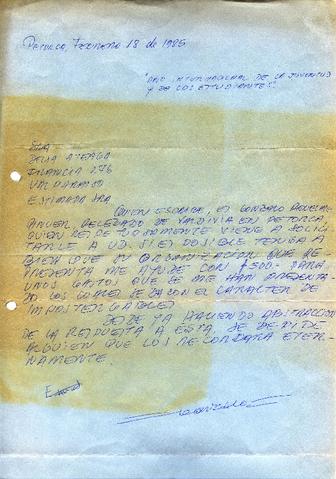 Petorca, Febrero 18 de 1985
"Año Internacional de la Juventud
y de los Estudiantes".
Sra
Delia
276
Valparaiso
Estimada Sra
Quien escribe, es Gonzalo
delegado de Valdivia en Petorca,
quien respetuosamente viene a solici
tarle a Ud. si es posible tenga a
bien que su organización que re
presenta me ayude con $500- para
unos gastos que se me han presenta
do los cuales son con el caracter de
impostergables.
Desde ya haciendo abstraccion
de la respuesta a esta, se despide
alguien que los recordara eter-
namente
Gonzalo